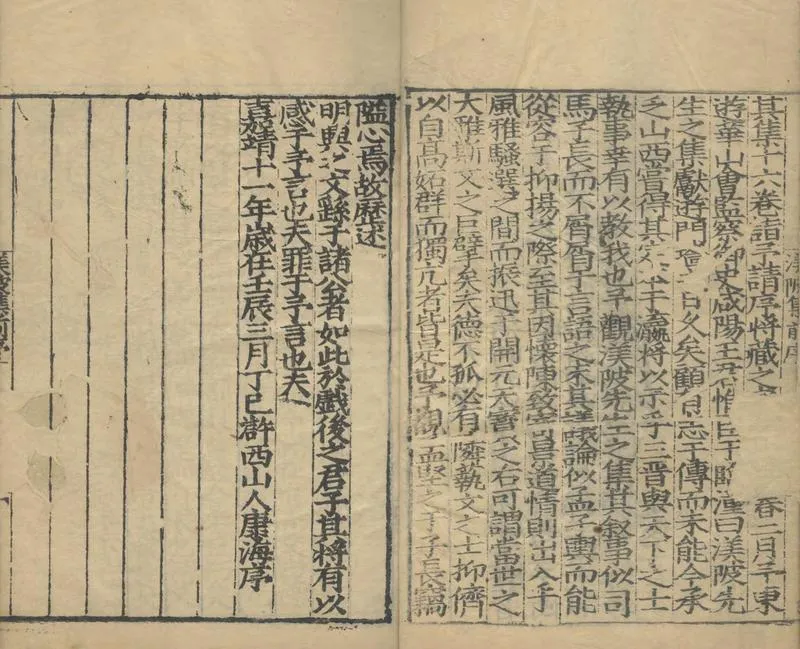 其集十六卷詣予請序將藏之 春二月予東
遊華山會監察御史咸陽王君惟臣于臨潼曰渼陂先
生之集獻遊門 日久矣顧自忘于傳而未能今承
乏山西嘗得其 于瀛將以示乎三晉與天下之士
執事幸有以教我也予觀渼陂先生之集其敘事似司
馬子長而不屑屑于言語之末其議論似孟子輿而能
從容于抑揚之際至其因懷陳致寓 道情則出入乎
風雅騷選之間而振迅于開元天寶之右可謂當世之
大雅斯文之巨擘矣夫德不孤必有隣執文之士抑儕
以自高妬群而獨亢者皆是也予觀孟堅之于子長竊
渼陂集前序
隘心焉故歷述
明興之文繇子諸公者如此於戲後之君子其將有以
感于予言也夫罪于予言也夫
嘉靖十一年歲在壬辰三月丁巳滸西山人康海序
渼陂集前序